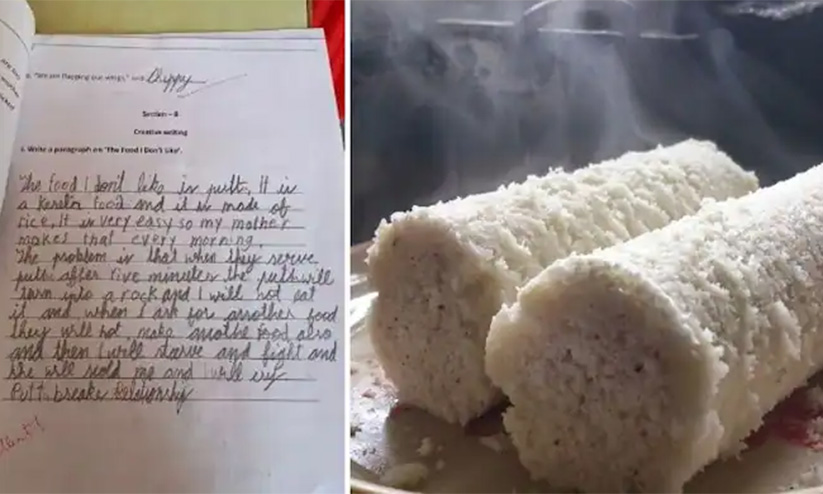 "We are flapping our wings," said Chippy
Section – B
Creative writing
Write a paragraph on 'The Food I Don't Like'.
The food I don't like is putt. It is
a Kerala food and it is made of
rice. It is very easy so my mother
makes that every morning.
The problem is that when they serve
putt after five minutes the putt will
turn into a rock and I will not eat
it and when I ask for another food
they will not make anothe food also
and then I will starve and fight and
she will scold me and I will cry
Putt breakes Relationship